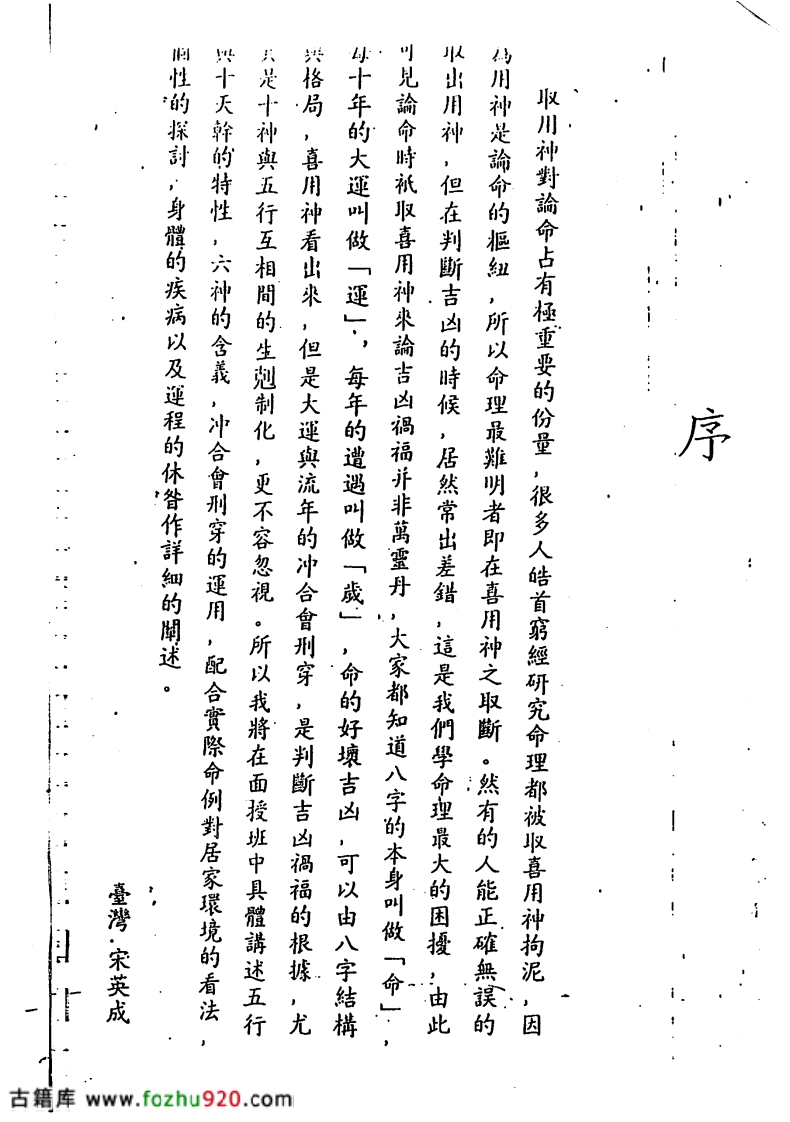 序
取用神對論命占有極重要的份量，很多人皓首窮經研究命理都被取喜用神拘泥，因
為用神是論命的樞紐，所以命理最難明者即在喜用神之取斷。然有的人能正確無誤的
取出用神，但在判斷吉凶的時候，居然常出差錯，這是我們學命理最大的困擾，由此
可見論命時衹取喜用神來論吉凶禍福并非萬靈丹，大家都知道八字的本身叫做「命」，
每十年的大運叫做「運」，每年的遭遇叫做「歲」，命的好壞吉凶，可以由八字結構
與格局，喜用神看出來，但是大運與流年的冲合會刑穿，是判斷吉凶禍福的根據，尤
其是十神與五行互相間的生剋制化，更不容忽視。所以我將在面授班中具體講述五行
與十天幹的特性，六神的含義，冲合會刑穿的運用，配合實際命例對居家環境的看法，
個性的探討，身體的疾病以及運程的休咎作詳細的闡述。
臺灣·宋英成
古籍库 www.fozhu920.com